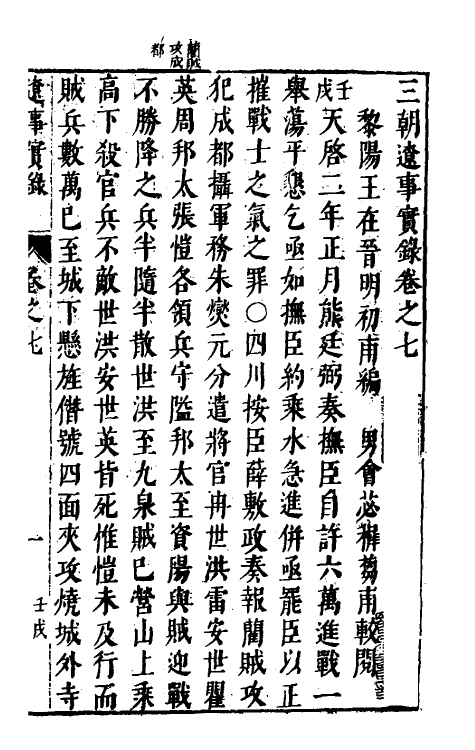 藺賊
攻成
都
三朝遼事實錄卷之七
黎陽王在晉明初甫編 男會苾穉芻甫較閱
壬戌
天啓二年正月熊廷弼奏撫臣自許六萬進戰一
舉蕩平懇乞亟如撫臣約乘水急進併亟罷臣以正
摧戰士之氣之罪○四川按臣薛敷政奏報藺賊攻
犯成都攝軍務朱燮元分遣將官冉世洪雷安世瞿
英周邦太張愷各領兵守隘邦太至資陽與賊迎戰
不勝降之兵半隨半散世洪至九泉賊已營山上乘
高下殺官兵不敵世洪安世英皆死惟愷未及行而
賊兵數萬已至城下懸旌僭號四面夾攻燒城外寺
遼事實錄 卷之七 一 壬戌